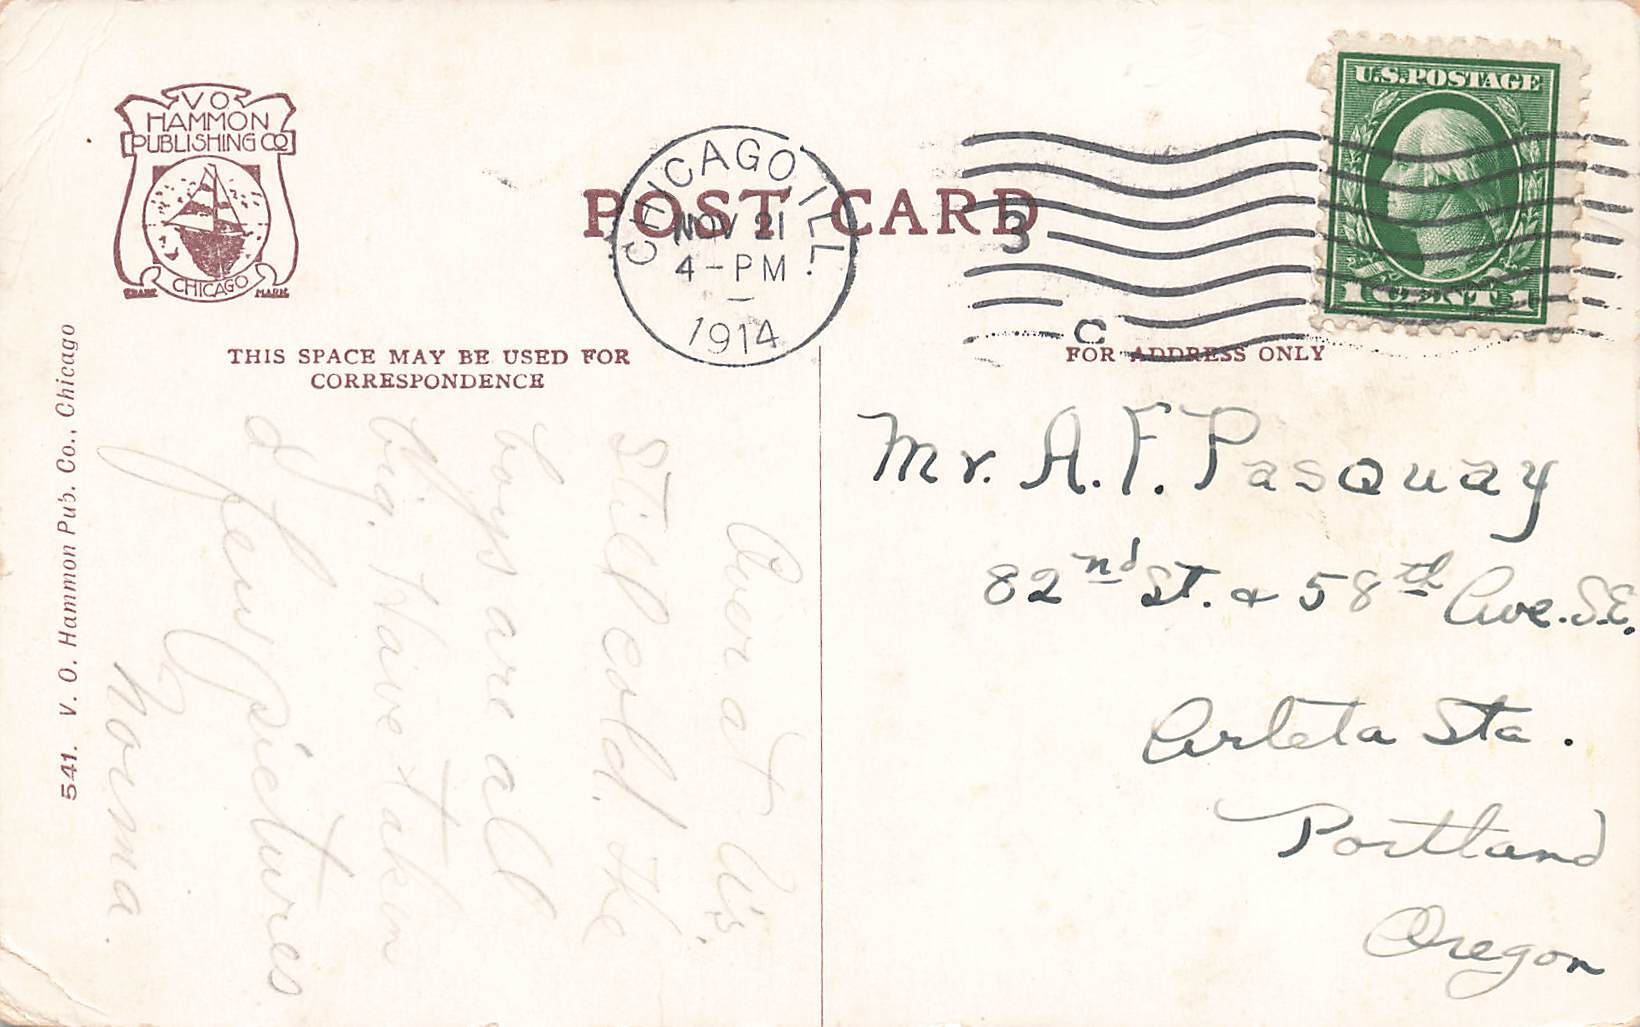 V O
HAMMON
PUBLISHING CO
CHICAGO
TRADE MARK
POST CARD
CHICAGO ILL.
NOV 21
4-PM
1914
3
C
U.S. POSTAGE
1 CENT 1
THIS SPACE MAY BE USED FOR
CORRESPONDENCE
FOR ADDRESS ONLY
541. V. O. Hammon Pub. Co., Chicago
Am at Vi's.
Still cold. The
boys are all
big. Have taken
a few pictures
Norma.
Mr. A. F. Pasquay
82nd St. & 58th Ave. S.E.
Arleta Sta.
Portland
Oregon